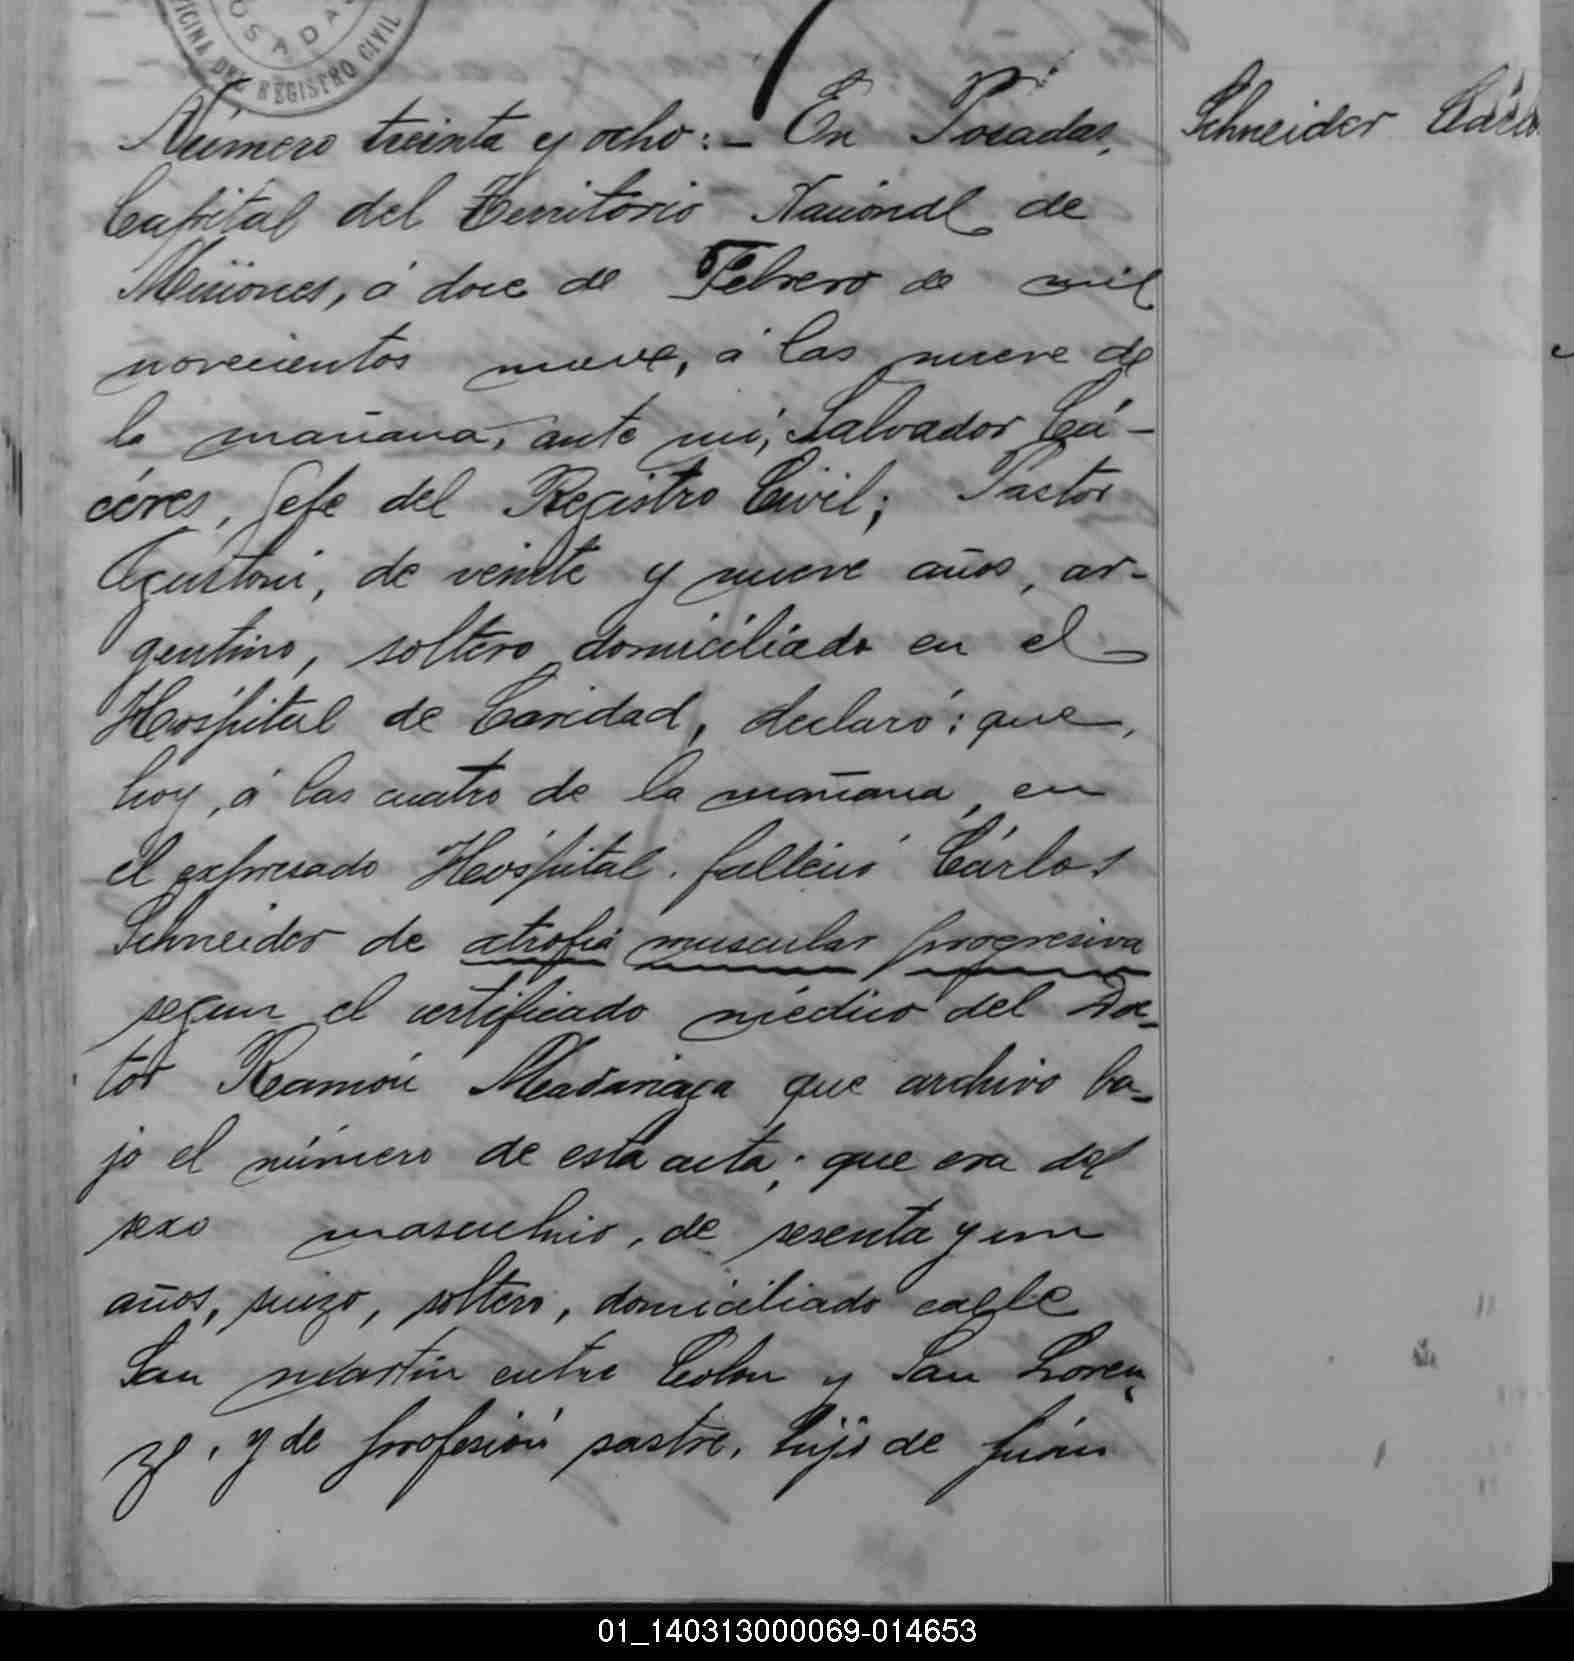 OSADAS
OFICINA DEL REGISTRO CIVIL
Schneider Cárlos
Número treinta y ocho:- En Posadas,
Capital del Territorio Nacional de
Misiones, á doce de Febrero de mil
novecientos nueve, á las nueve de
la mañana, ante mi, Salvador Cá-
ceres, Jefe del Registro Civil; Pastor
Agustoni, de veinte y nueve años, ar-
gentino, soltero domiciliado en el
Hospital de Caridad, declaró: que,
hoy, á las cuatro de la mañana, en
el expresado Hospital. falleció Cárlos
Schneider de atrofia muscular progresiva
segun el certificado médico del Doc-
tor Ramón Madariaga que archivo ba-
jo el número de esta acta; que era del
sexo masculino, de sesenta y un
años, suizo, soltero, domiciliado calle
San Martin entre Colon y San Loren-
zo, y de profesión sastre, hijo de Juán
01_140313000069-014653